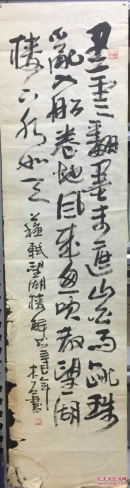 黑雲翻墨未遮山白雨跳珠
亂入船卷地風來忽吹散望湖
樓下水如天
蘇軾望湖樓醉書辛巳年